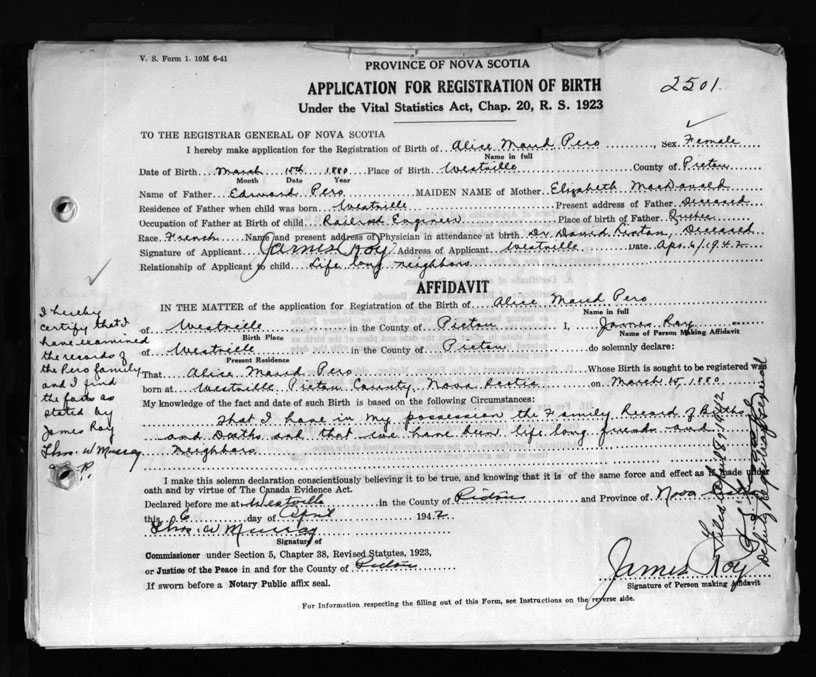 V. S. Form 1. 10M 6-41
PROVINCE OF NOVA SCOTIA
APPLICATION FOR REGISTRATION OF BIRTH
2501.
Under the Vital Statistics Act, Chap. 20, R. S. 1923
TO THE REGISTRAR GENERAL OF NOVA SCOTIA
I hereby make application for the Registration of Birth of Alice Maud Pero, Sex Female
Name in full
Date of Birth March 15th 1880 Place of Birth Westville County of Pictou
Month Date Year
Name of Father Edward Pero MAIDEN NAME of Mother Elizabeth MacDonald
Residence of Father when child was born Westville Present address of Father Deceased
Occupation of Father at Birth of child Railroad Engineer Place of birth of Father Quebec
Race French Name and present address of Physician in attendance at birth Dr David Deceased
Signature of Applicant James Roy Address of Applicant Westville Date Apr. 6/1942
Relationship of Applicant to child Life long neighbors
AFFIDAVIT
IN THE MATTER of the application for Registration of the Birth of Alice Maud Pero
Name in full
of Westville in the County of Pictou I, James Roy
Birth Place Name of Person Making Affidavit
of Westville in the County of Pictou do solemnly declare:
Present Residence
That Alice Maud Pero Whose Birth is sought to be registered was
born at Westville Pictou County Nova Scotia on March 15, 1880
My knowledge of the fact and date of such Birth is based on the following Circumstances:
That I have in my possession the Family Record of Births
and Deaths and that we have been life long friends and
neighbors
I make this solemn declaration conscientiously believing it to be true, and knowing that it is of the same force and effect as if made under
oath and by virtue of The Canada Evidence Act.
Declared before me at Westville in the County of Pictou and Province of Nova Scotia
this 6 day of April 1942
Thos. W Murray
Signature of
Commissioner under Section 5, Chapter 38, Revised Statutes, 1923,
or Justice of the Peace in and for the County of Pictou
If sworn before a Notary Public affix seal.
James Roy
Signature of Person making Affidavit
For Information respecting the filling out of this Form, see Instructions on the reverse side.
I hereby
certify that I
have examined
the records of
the Pero family
and I find
the facts as
stated by
James Roy
Thos. W Murray
J. P.
Filed April 18th 1942
Deputy Registrar General